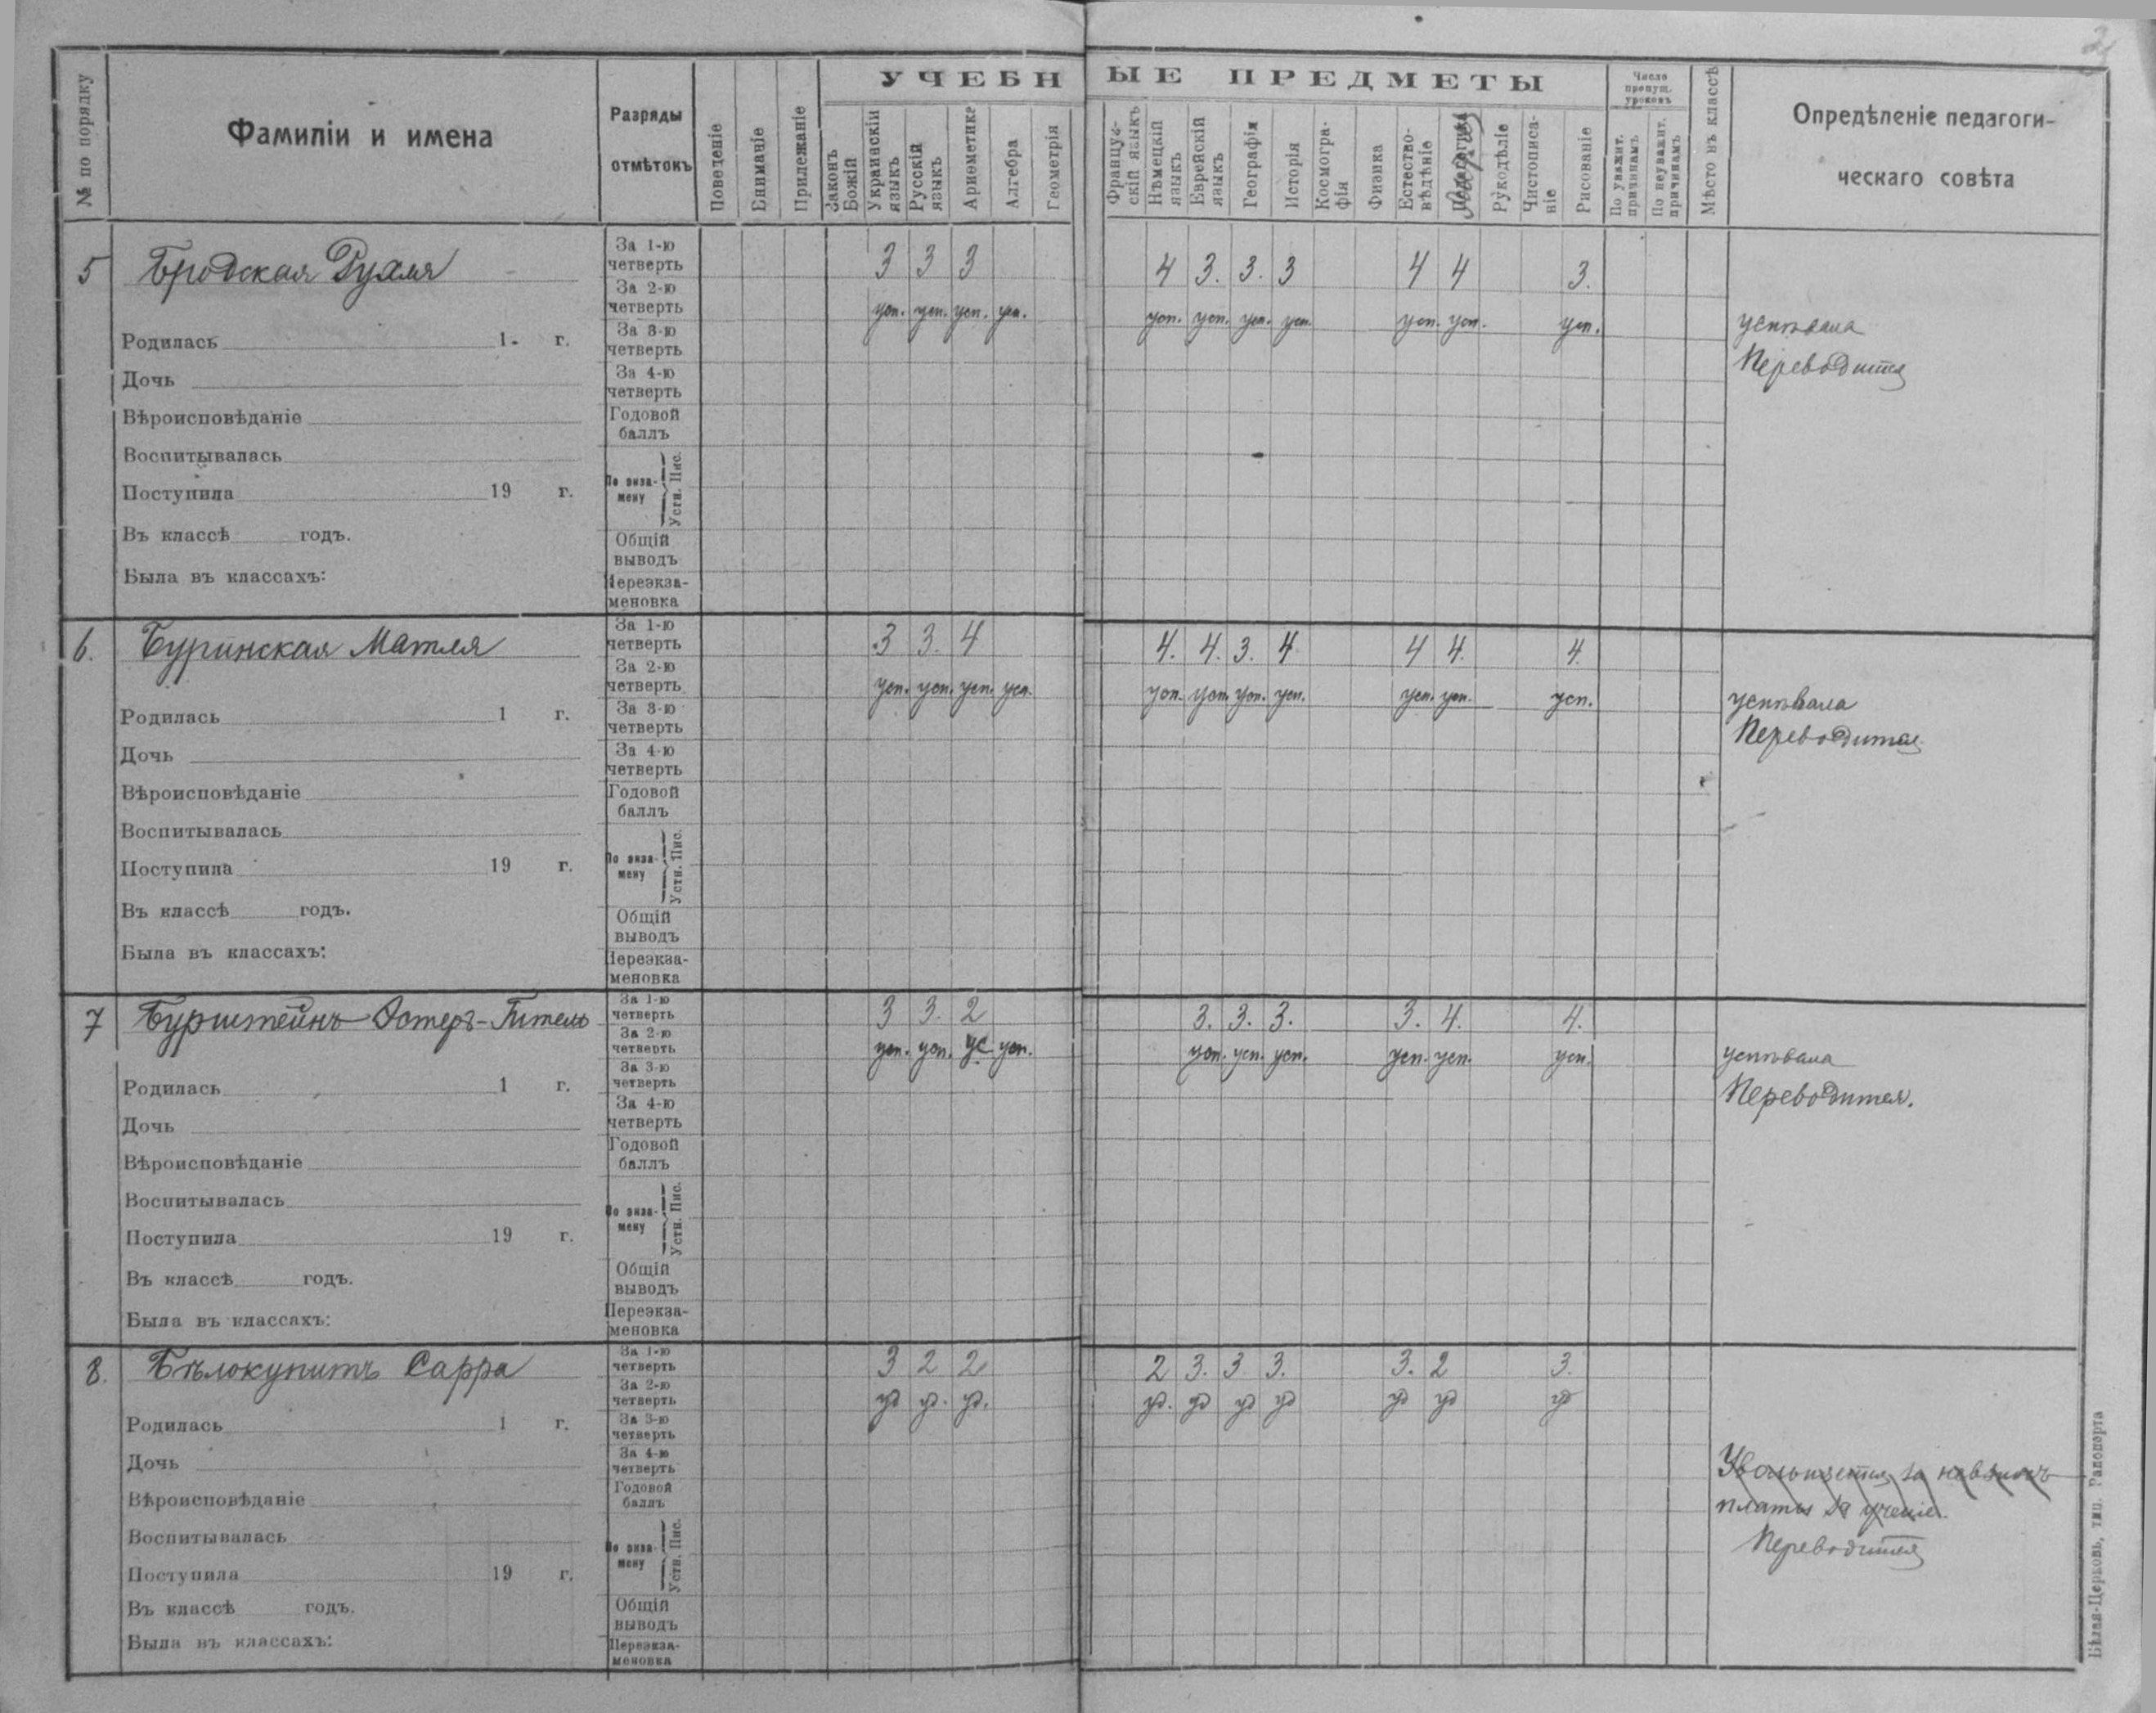 2
УЧЕБНЫЕ ПРЕДМЕТЫ
№ по порядку
Фамиліи и имена
Разряды отмѣтокъ
Поведеніе
Вниманіе
Прилежаніе
Законъ Божій
Украинскій языкъ
Русскій языкъ
Ариѳметика
Алгебра
Геометрія
Француз-скій языкъ
Нѣмецкій языкъ
Еврейскій языкъ
Географія
Исторія
Космогра-фія
Физика
Естество-вѣдѣніе
Рукодѣліе
Чистописа-ніе
Рисованіе
Число пропущ. уроковъ
По уважит. причинамъ
По неуважит. причинамъ
Мѣсто въ классѣ
Опредѣленіе педагоги-
ческаго совѣта
5 Бродская Рухля
За 1-ю четверть 3 3 3 4 3. 3. 3 4 4 3.
За 2-ю четверть усп. усп. усп. усп. усп. усп. усп. усп. усп. усп. усп.
Родилась 1 г.
За 3-ю четверть
успѣвала
Дочь
За 4-ю четверть
Переводится
Вѣроисповѣданіе
Годовой баллъ
Воспитывалась
По экза-мену Устн. Пис.
Поступила 19 г.
Въ классѣ годъ.
Общій выводъ
Была въ классахъ:
Переэкза-меновка
6. Буринская Матля
За 1-ю четверть 3 3. 4 4. 4. 3. 4 4 4. 4.
За 2-ю четверть усп. усп. усп. усп. усп. усп. усп. усп. усп. усп. усп.
Родилась 1 г.
За 3-ю четверть
успѣвала
Дочь
За 4-ю четверть
Переводится
Вѣроисповѣданіе
Годовой баллъ
Воспитывалась
По экза-мену Устн. Пис.
Поступила 19 г.
Въ классѣ годъ.
Общій выводъ
Была въ классахъ:
Переэкза-меновка
7 Бурштейнъ Эстеръ-Гитель
За 1-ю четверть 3 3. 2 3. 3. 3. 3. 4. 4.
За 2-ю четверть усп. усп. ус усп. усп. усп. усп. усп. усп. усп.
Родилась 1 г.
За 3-ю четверть
успѣвала
Дочь
За 4-ю четверть
Переводится.
Вѣроисповѣданіе
Годовой баллъ
Воспитывалась
По экза-мену Устн. Пис.
Поступила 19 г.
Въ классѣ годъ.
Общій выводъ
Была въ классахъ:
Переэкза-меновка
8. Бѣлокупитъ Сарра
За 1-ю четверть 3 2 2 2 3. 3 3. 3. 2 3.
За 2-ю четверть уд уд. уд. уд. уд уд уд уд уд уд
Родилась 1 г.
За 3-ю четверть
Дочь
За 4-ю четверть
Увольняется за невзносъ
Вѣроисповѣданіе
Годовой баллъ
платы за ученіе.
Воспитывалась
По экза-мену Устн. Пис.
Переводится
Поступила 19 г.
Въ классѣ годъ.
Общій выводъ
Была въ классахъ:
Переэкза-меновка
Бѣлая-Церковь, тип. Рапопорта